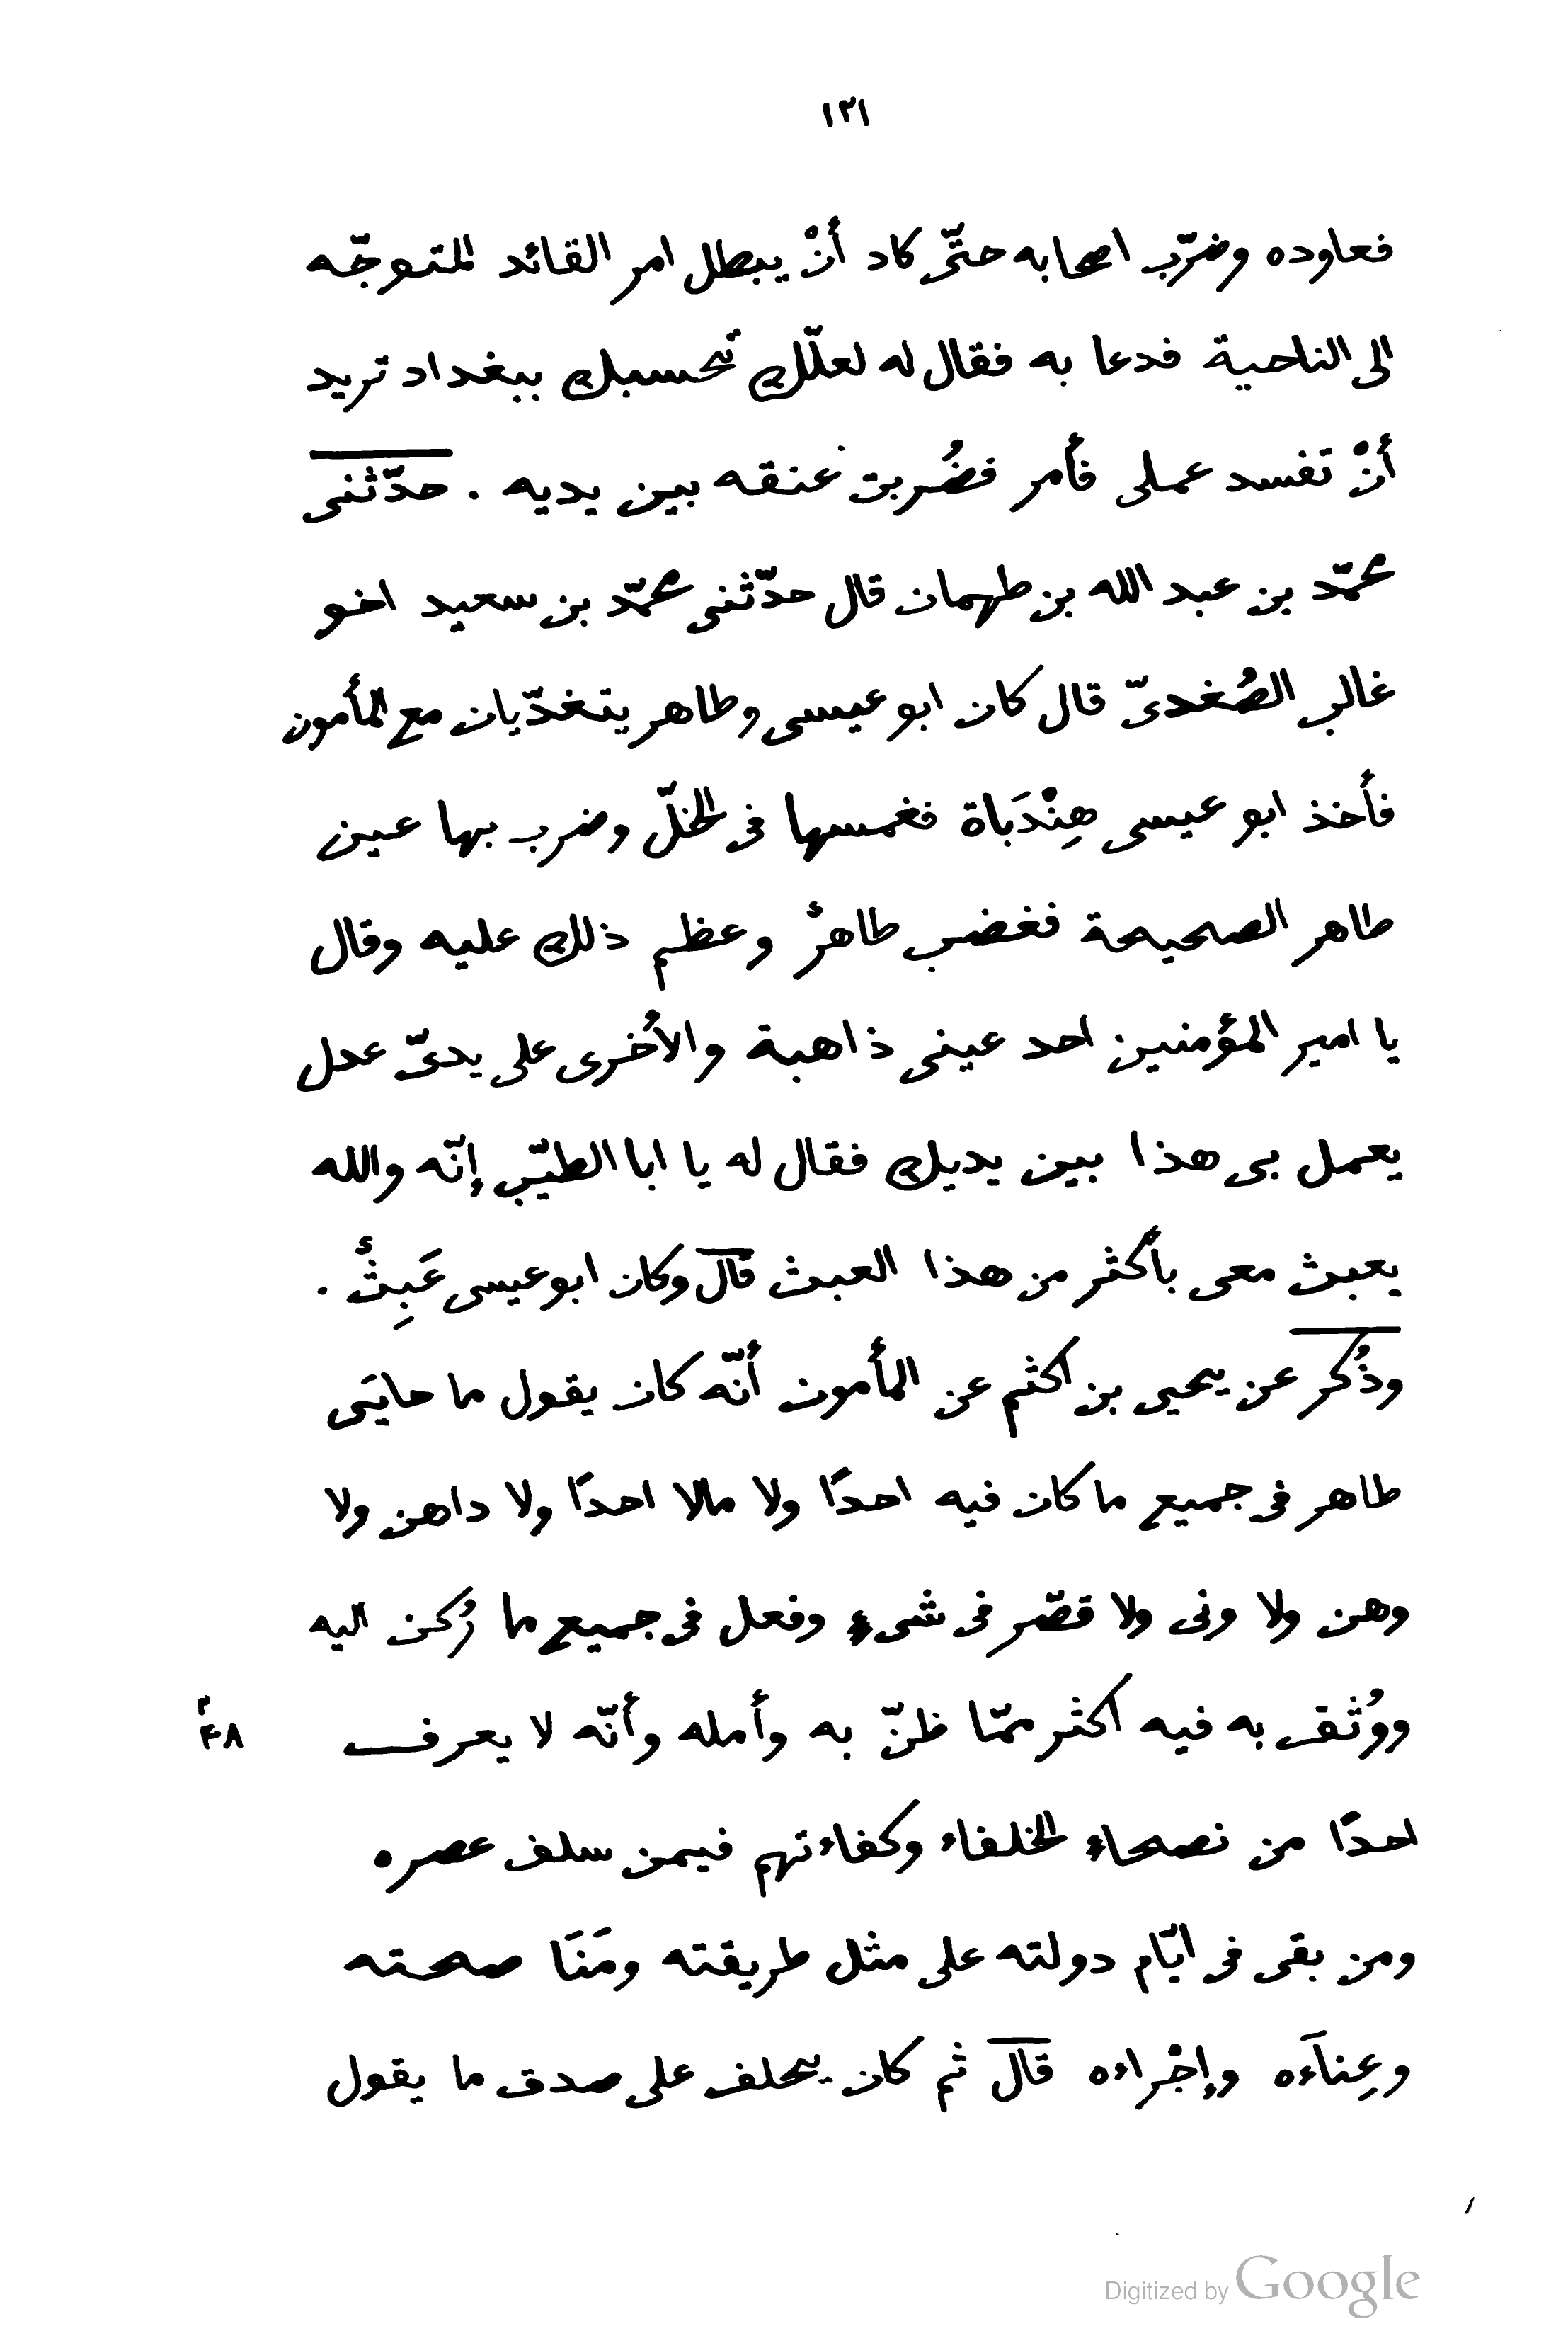 ١٣١
فعاوده وضرّب اصحابه حتّى كاد أنْ يبطل امر القائد المتوجّه
الى الناحية فدعا به فقال له لعلّك تحسبك ببغداد تريد
أنْ تفسد عملى فأمر فضُربت عنقه بين يديه . حدّثنى
محمّد بن عبد الله بن طهمان قال حدّثنى محمّد بن سعيد اخو
غالب الصُغدىّ قال كان ابو عيسى وطاهر يتغدّيان مع المأمون
فأخذ ابو عيسى هِنْدَباة فغمسها فى الخلّ وضرب بها عين
طاهر الصحيحة فغضب طاهرٌ وعظم ذلك عليه وقال
يا امير المؤمنين احد عينى ذاهبة والأُخرى على يدىّ عدل
يعمل بى هذا بين يديك فقال له يا ابا الطيّب إنّه والله
يعبث معى بأكثر من هذا العبث قال وكان ابو عيسى عَبِثٌ .
وذُكر عن يحيى بن اكثم عن المأمون أنّه كان يقول ما حابَى
طاهر فى جميع ما كان فيه احدًا ولا مالا احدًا ولا داهن ولا
وهن ولا ونى ولا قصّر فى شىء وفعل فى جميع ما رُكن اليه
ووُثق به فيه اكثر ممّا ظنّ به وأمله وأنّه لا يعرف
٤٨
احدًا من نصحاء الخلفاء وكفاءتهم فيمن سلف عصره
ومن بقى فى ايّام دولته على مثل طريقته ومَنَا صحته
وعِناَءه وإجْراءه قال ثم كان يحلف على صدق ما يقول
Digitized by Google